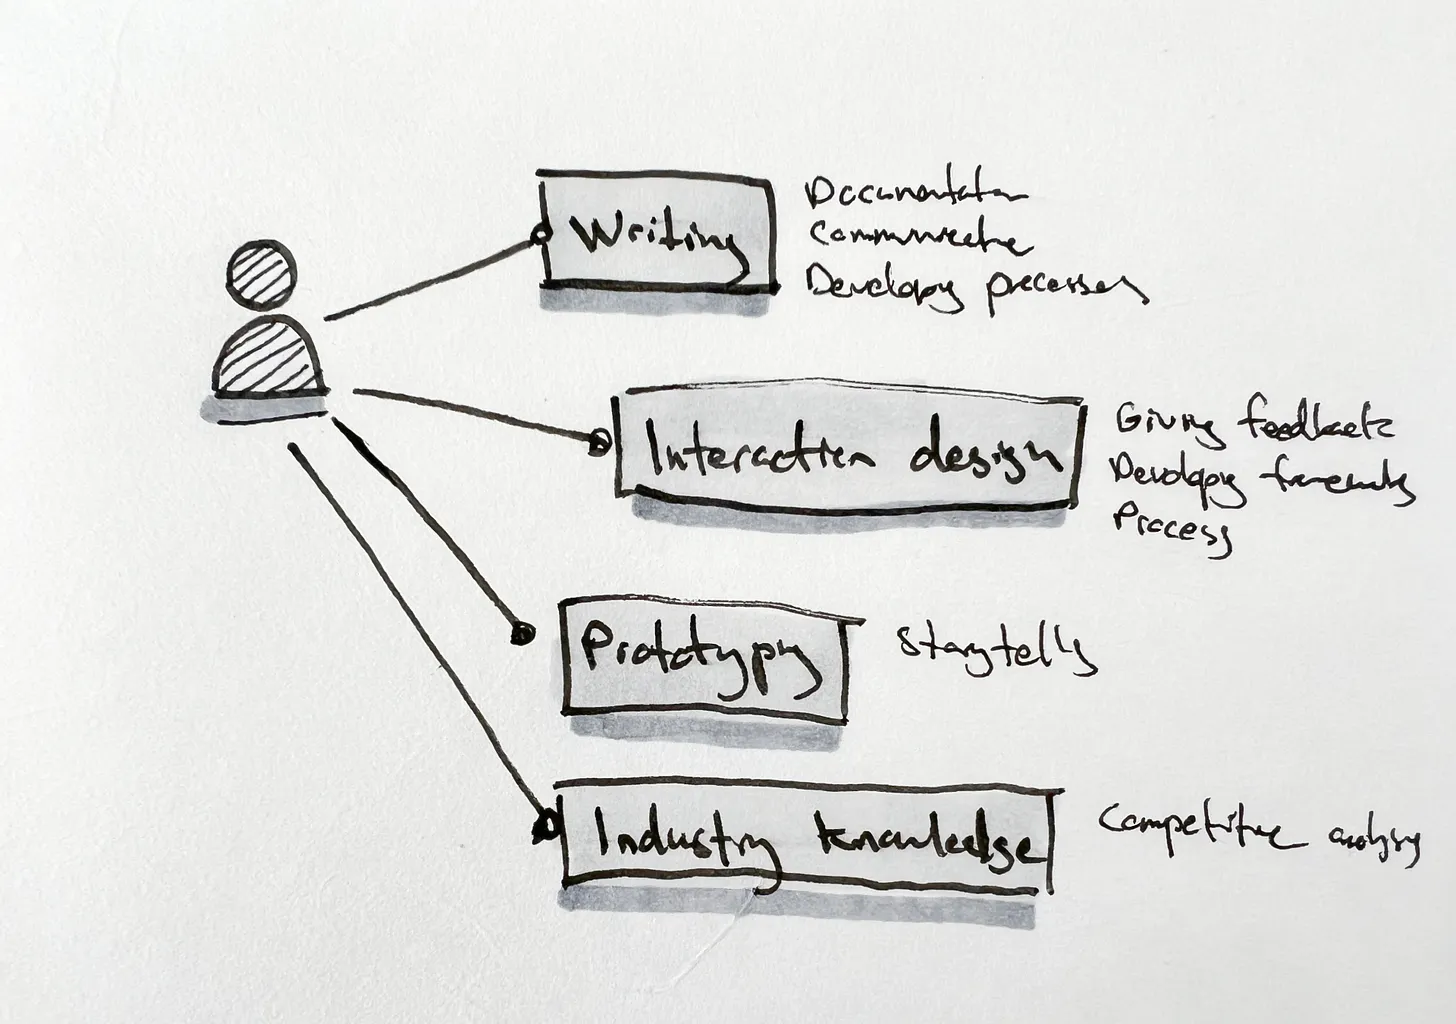 Writing
Documentation
Communicate
Developing processes
Interaction design
Giving feedback
Developing frameworks
Process
Prototyping
Storytelling
Industry knowledge
Competitive analysis